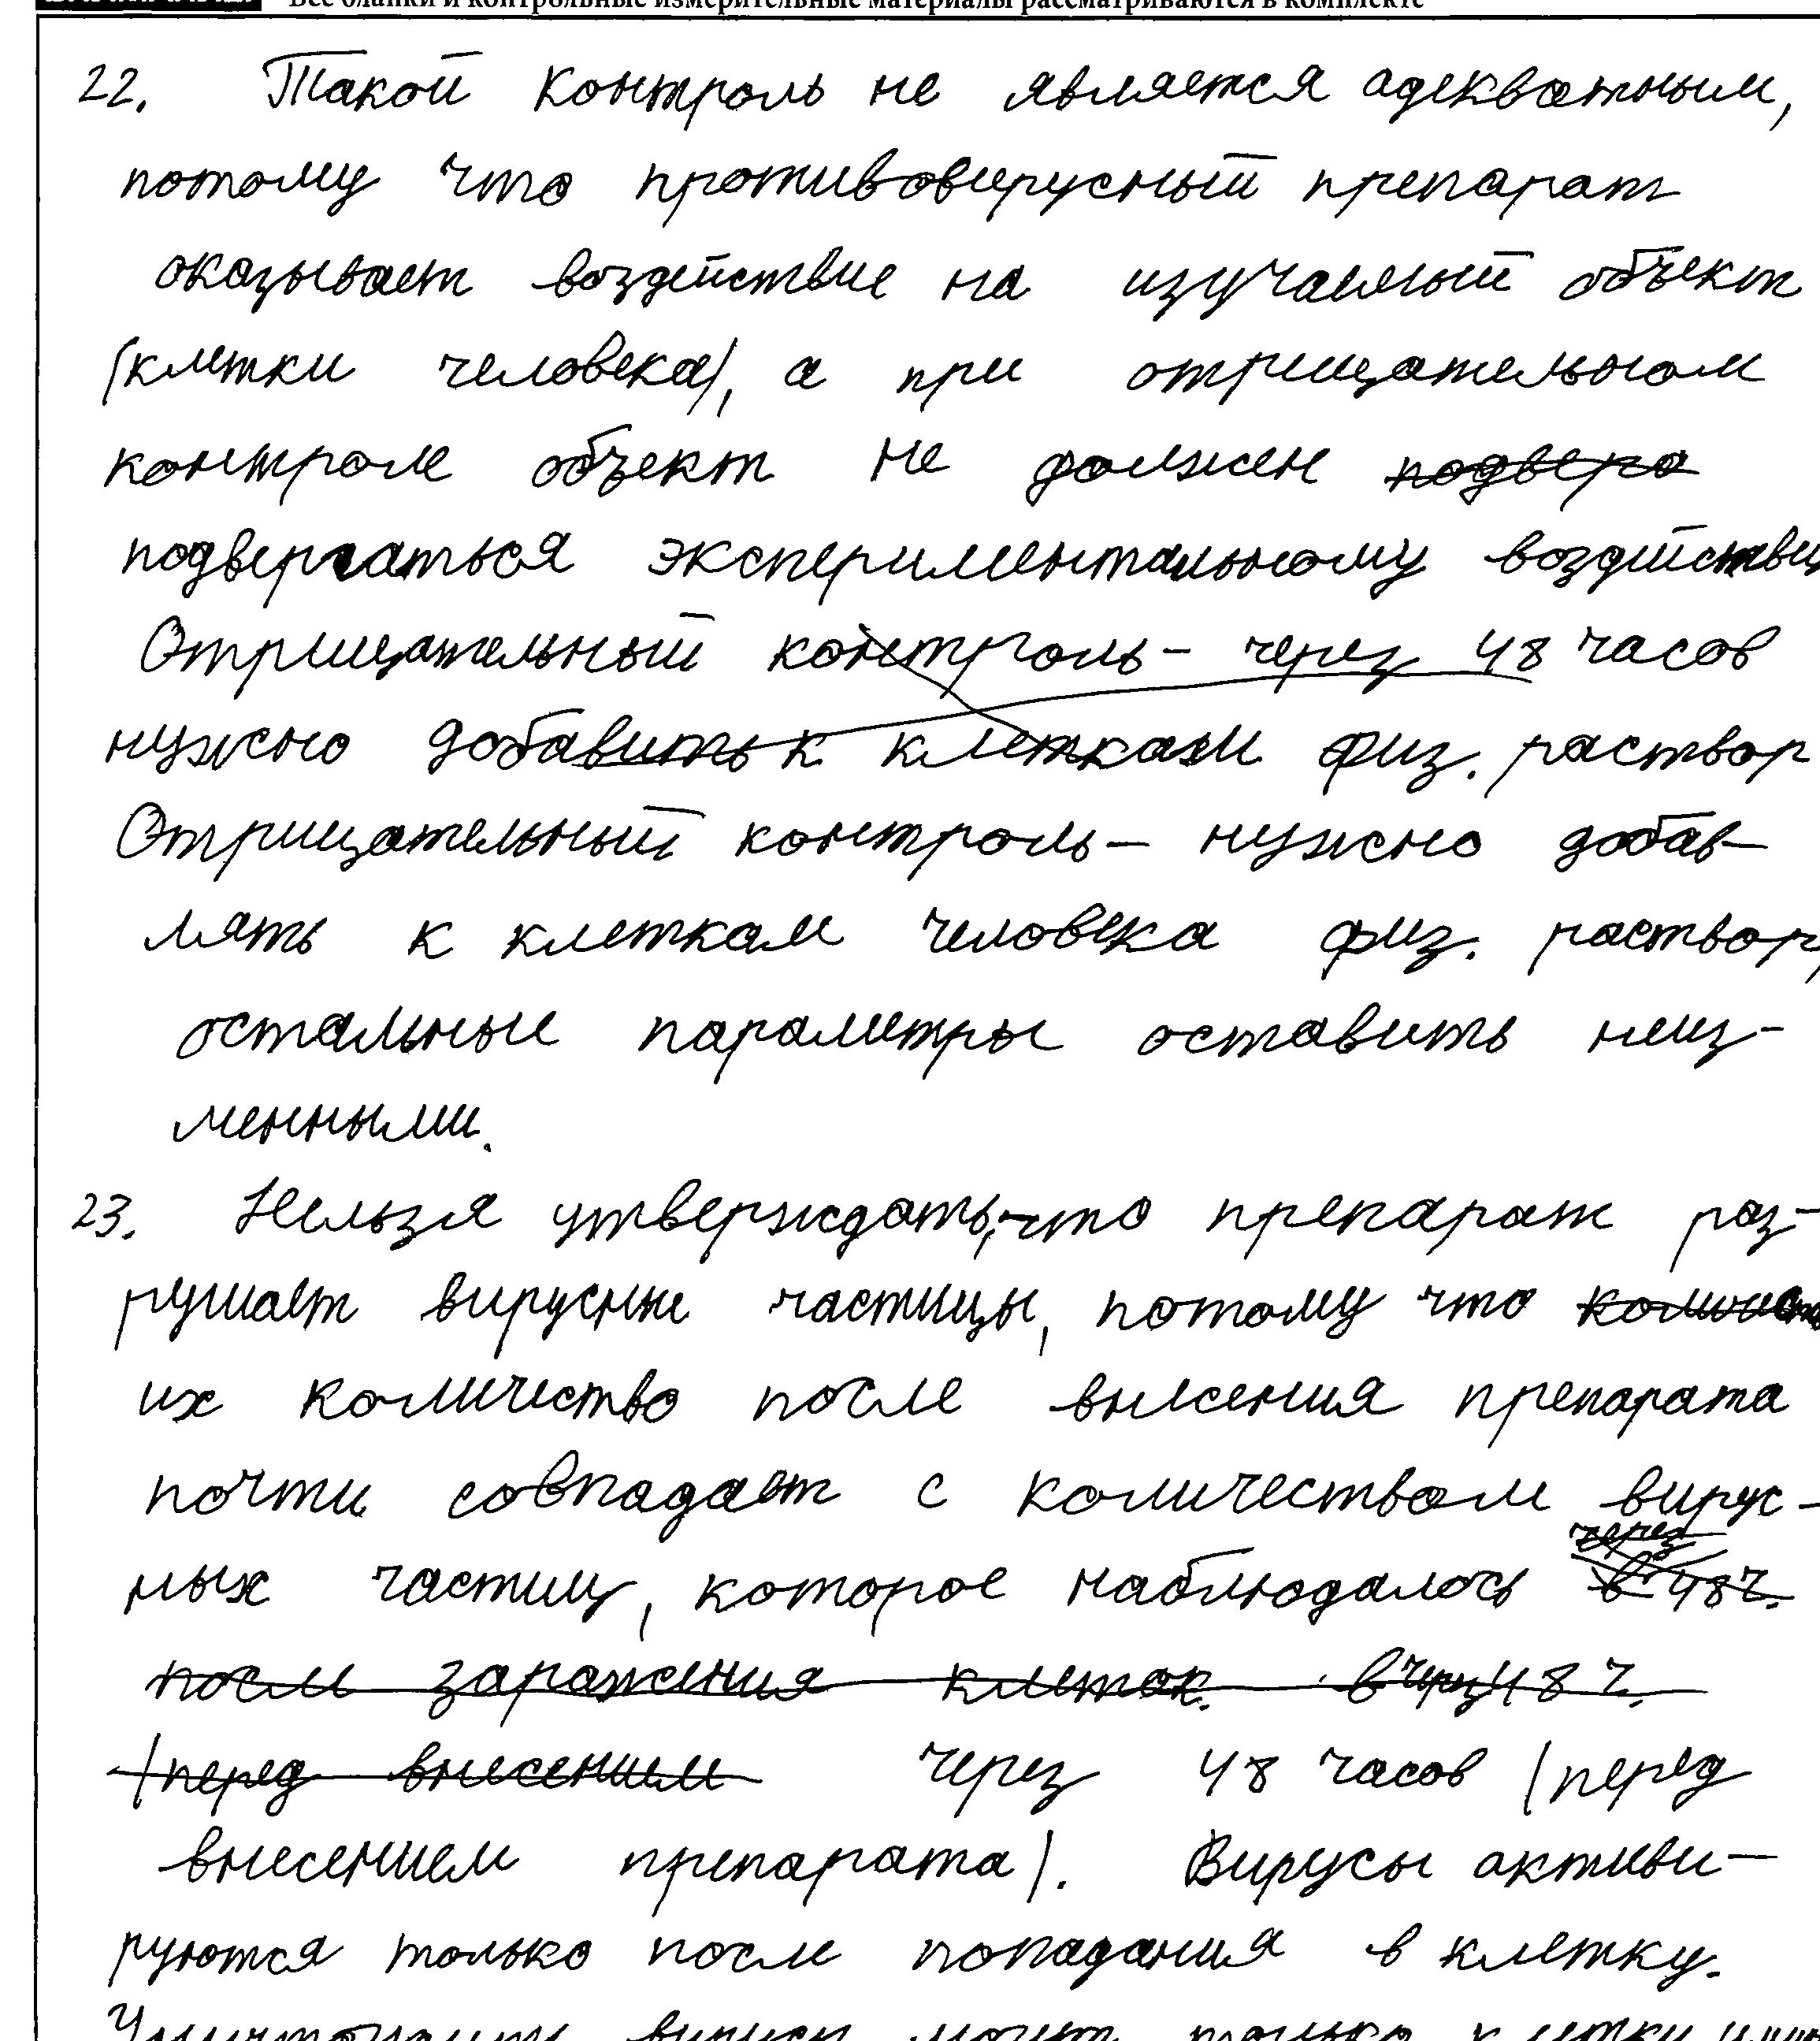 Все бланки и контрольные измерительные материалы рассматриваются в комплекте
22. Такой контроль не является адекватным,
потому что противовирусный препарат
оказывает воздействие на изучаемый объект
(клетки человека), а при отрицательном
контроле объект не должен подверга
подвергаться экспериментальному воздействи
Отрицательный контроль - через 48 часов
нужно добавить к клеткам физ. раствор
Отрицательный контроль - нужно добав-
лять к клеткам человека физ. раствор,
остальные параметры оставить неиз-
менными.
23. Нельзя утверждать, что препарат раз-
рушает вирусные частицы, потому что
их количество после внесения препарата
почти совпадает с количеством вирус-
ных частиц, которое наблюдалось через в 48 ч.
после заражения клеток. в через 48 ч.
(перед внесением через 48 часов (перед
внесением препарата). Вирусы активи-
руются только после попадания в клетку.
вирусы могут только клетки